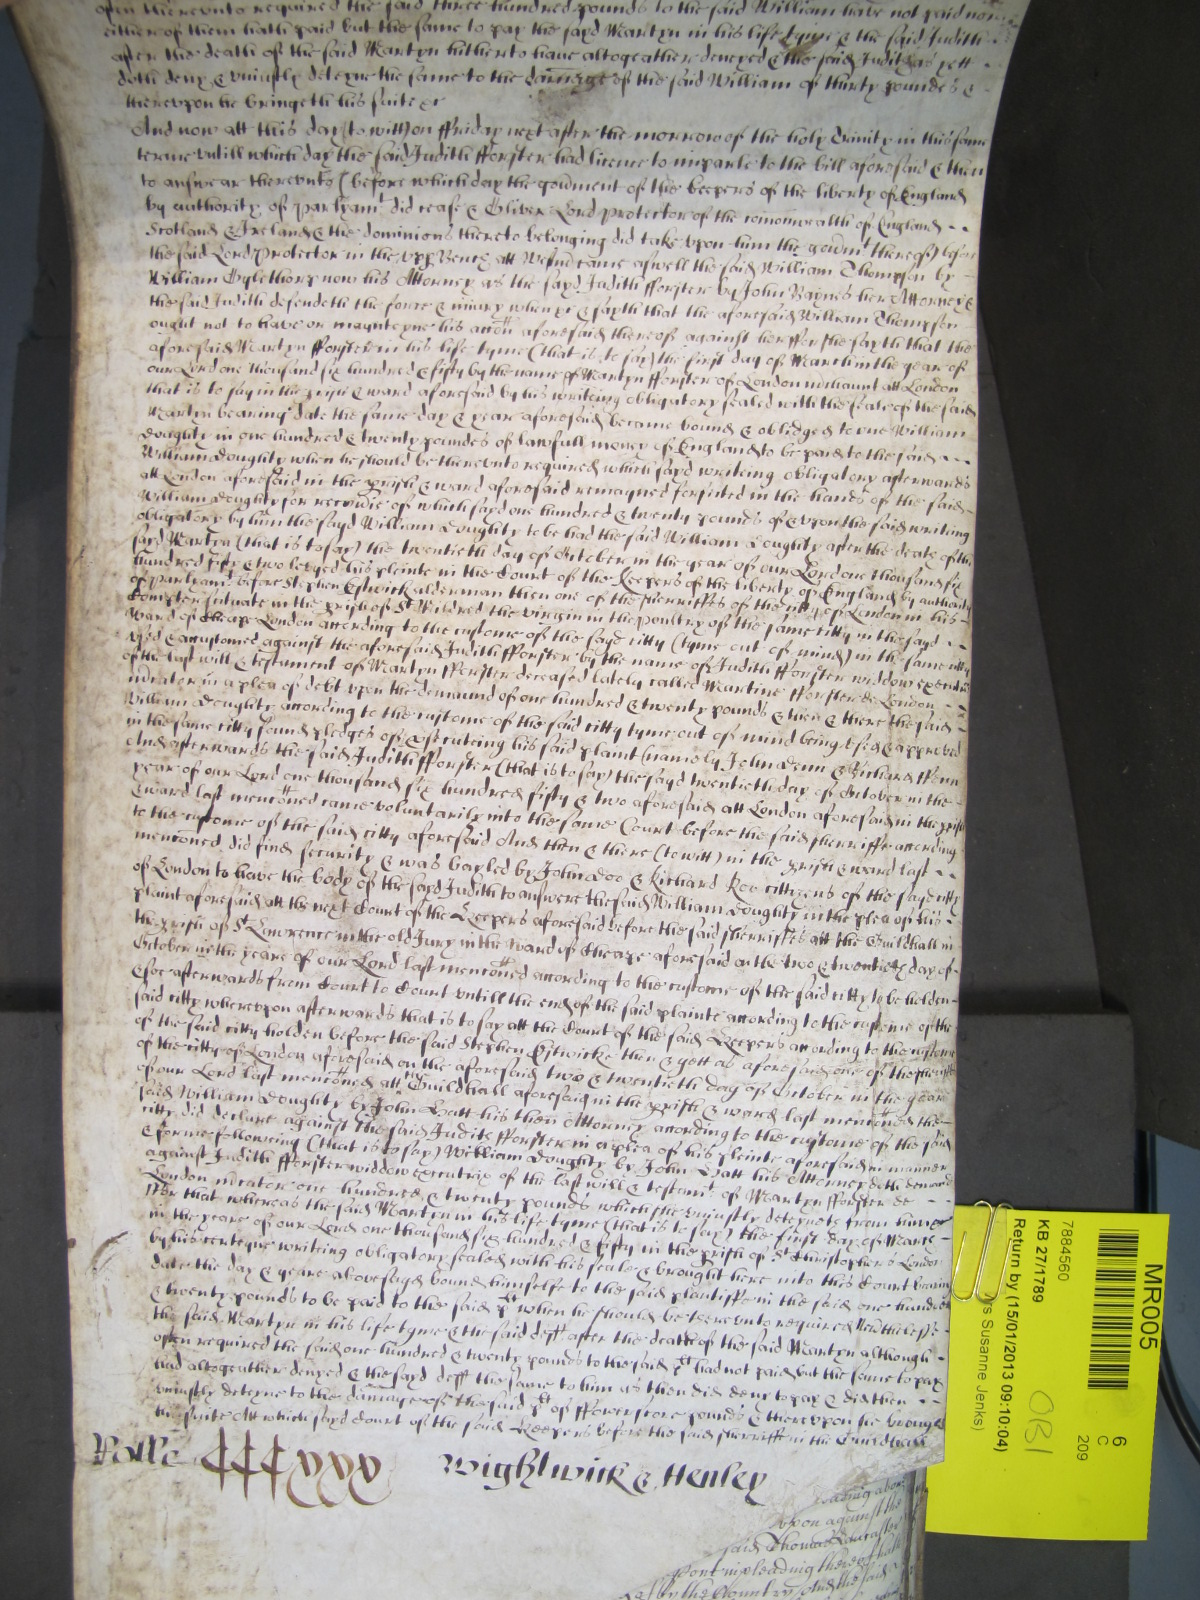 often therevnto required the said three hundred pounds to the said William have not paid nor
either of them hath paid but the same to pay the sayd Martyn in his life tyme & the said Judith
after the death of the said Martyn hitherto haue altogeather denyed & the said Judith as yett
doth deny & vniustly deteyne the same to the damage of the said William of thirty poundes &
therevpon he bringeth his suite &c
And now att this day (to witt) on ffriday next after the morrow of the holy Trinity in this same
terme vntill which day the said Judith fforster had licence to imparle to the bill aforesaid & then
to answear therevnto (before which day the goūment of the keepers of the liberty of England
by authority of parlyamt did cease & Oliver Lord protector of the comonwealth of England
Scotland & Ireland & the dominions thereto belonging did take vpon him the goūmt thereof) before
the said Lord Protector in the vpp Bench att Westm̄ came aswell the said William Thompson by
William Oglethorp now his Attorney as the sayd Judith fforster by John Raynes her Attorney &
the said Judith defendeth the force & iniury when &c & sayth that the aforesaid William Thompson
ought not to have or maynteyne his acc̄on aforesaid thereof against her ffor she sayth that the
aforesaid Martyn fforster in his life tyme (that is to say) the first day of March in the year of
our Lord one thousand six hundred & fifty by the name of Martyn fforster of London att London
that is to say in the p̲ish & ward aforesaid by his writeing obligatory sealed with the seale of the said
Martyn beareing date the same day & year aforesaid became bound & obliged to one William
Doughty in one hundred & twenty poundes of lawfull money of England to be paid to the said
William Doughty when he should be therevnto required which sayd writeing obligatory afterwards
att London aforesaid in the p̲ish & ward aforesaid remayned forfeited in the hands of the said
William Doughty for recovie of which sayd one hundred & twenty pounds of & vpon the said writing
obligatory by him the sayd William Doughty to be had the said William Doughty after the death of the
sayd Martyn (that is to say) the twentieth day of October in the year of our Lord one thousand six
hundred fifty & two levyed his pleinte in the Court of the Keepers of the liberty of England by authority
of parlyamt before Stephen Estwick alderman then one of the sherriffes of the city of London in his
Compter situate in the p̲ish of St Mildred the virgin in the poultry of the same citty in the sayd
ward of Cheape London according to the custome of the sayd citty (tyme out of mind) in the same citty
vsed & accustomed against the aforesaid Judith fforster by the name of Judith fforster widdow executrix
of the last will & testament of Martyn fforster deceased lately called Martine fforster de London
in a plea of debt vpon the demaund of one hundred & twenty pounds & then & there the said
William Doughty according to the custome of the said citty tyme out of mind being vsed & approved
in the same citty found pledges of prosecuteing his said plaint (namely) John Denn & Richard ffenn
And afterwards the said Judith fforster (that is to say) the sayd twentieth day of October in the
year of our Lord one thousand six hundred fifty & two aforesaid att London aforesaid in the p̲ish
& ward last menc̄oned came voluntarily into the same Court before the said sherriffe according
to the custome of the said citty aforesaid And then & there (to witt) in the p̲ish & ward last
menc̄oned did find security & was bayled by John Doo & Richard Roo cittyzens of the sayd citty
of London to have the body of the sayd Judith to answere the said William Doughty in the plea of his
plaint aforesaid att the next Court of the Keepers aforesaid before the said sherriffes att the Guildhall in
the p̲ish of St Lawrence in the old Jury in the ward of Cheape aforesaid on the two & twentieth day of
October in the yeare of our Lord last menc̄oned according to the custome of the said citty to be holden
& soe afterwards from Court to Court vntill the end of the said plainte according to the custome of the
said citty wherevpon afterwards that is to say att the Court of the said Keepers according to the custome
of the said citty holden before the said Stephen Estwicke then & yett as aforesaid one of the sherriffes
of the citty of London aforesaid on the aforesaid two & twentieth day of October in the year
of our Lord last menc̄oned att the Guildhall aforesaid in the p̲ish & ward last menc̄oned the
said William Doughty by John Batt his then Attorney according to the custome of the said
citty did declare against the said Judith fforster in a plea of his pleinte aforesaid in manner
& forme following (that is to say) William Doughty by John Batt his Attorney doth demand
against Judith fforster widdow executrix of the last will & testamt of Martyn fforster de
London one hundred & twenty pounds which she vniustly deteynes from him
ffor that whereas the said Martyn in his life tyme (that is to say) the first day of March
in the yeare of our Lord one thousand six hundred & fifty in the p̲ish of St Christophers London
by his certeyne writeing obligatory sealed with his seale & brought here into this Court beareing
date the day & yeare abovesayd bound himselfe to the said plaintiffe in the said one hundred
& twenty pounds to be paid to the said plt when he should be therevnto required Neverthelesse
the said Martyn in his life tyme & the said deft after the death of the said Martyn although
often required the said one hundred & twenty pounds to the said plt had not paid but the same to pay
had altogeather denyed & the sayd deft the same to him as then did deny to pay & did then
vniustly deteyne to the damage of the said plt of ffowerscore pounds & therevpon he brought
his suite Att which sayd Court of the said Keepers before the said sherriffe in the Guildhall
Wightwick & Henley
vpon against the
said Thomas Lancaster
impleading thereof hath
by the Country And the said
MR005
6
C
209
7884560
KB 27/1789
OB1
Return by (15/01/2013 09:10:04)
Mrs Susanne Jenks)